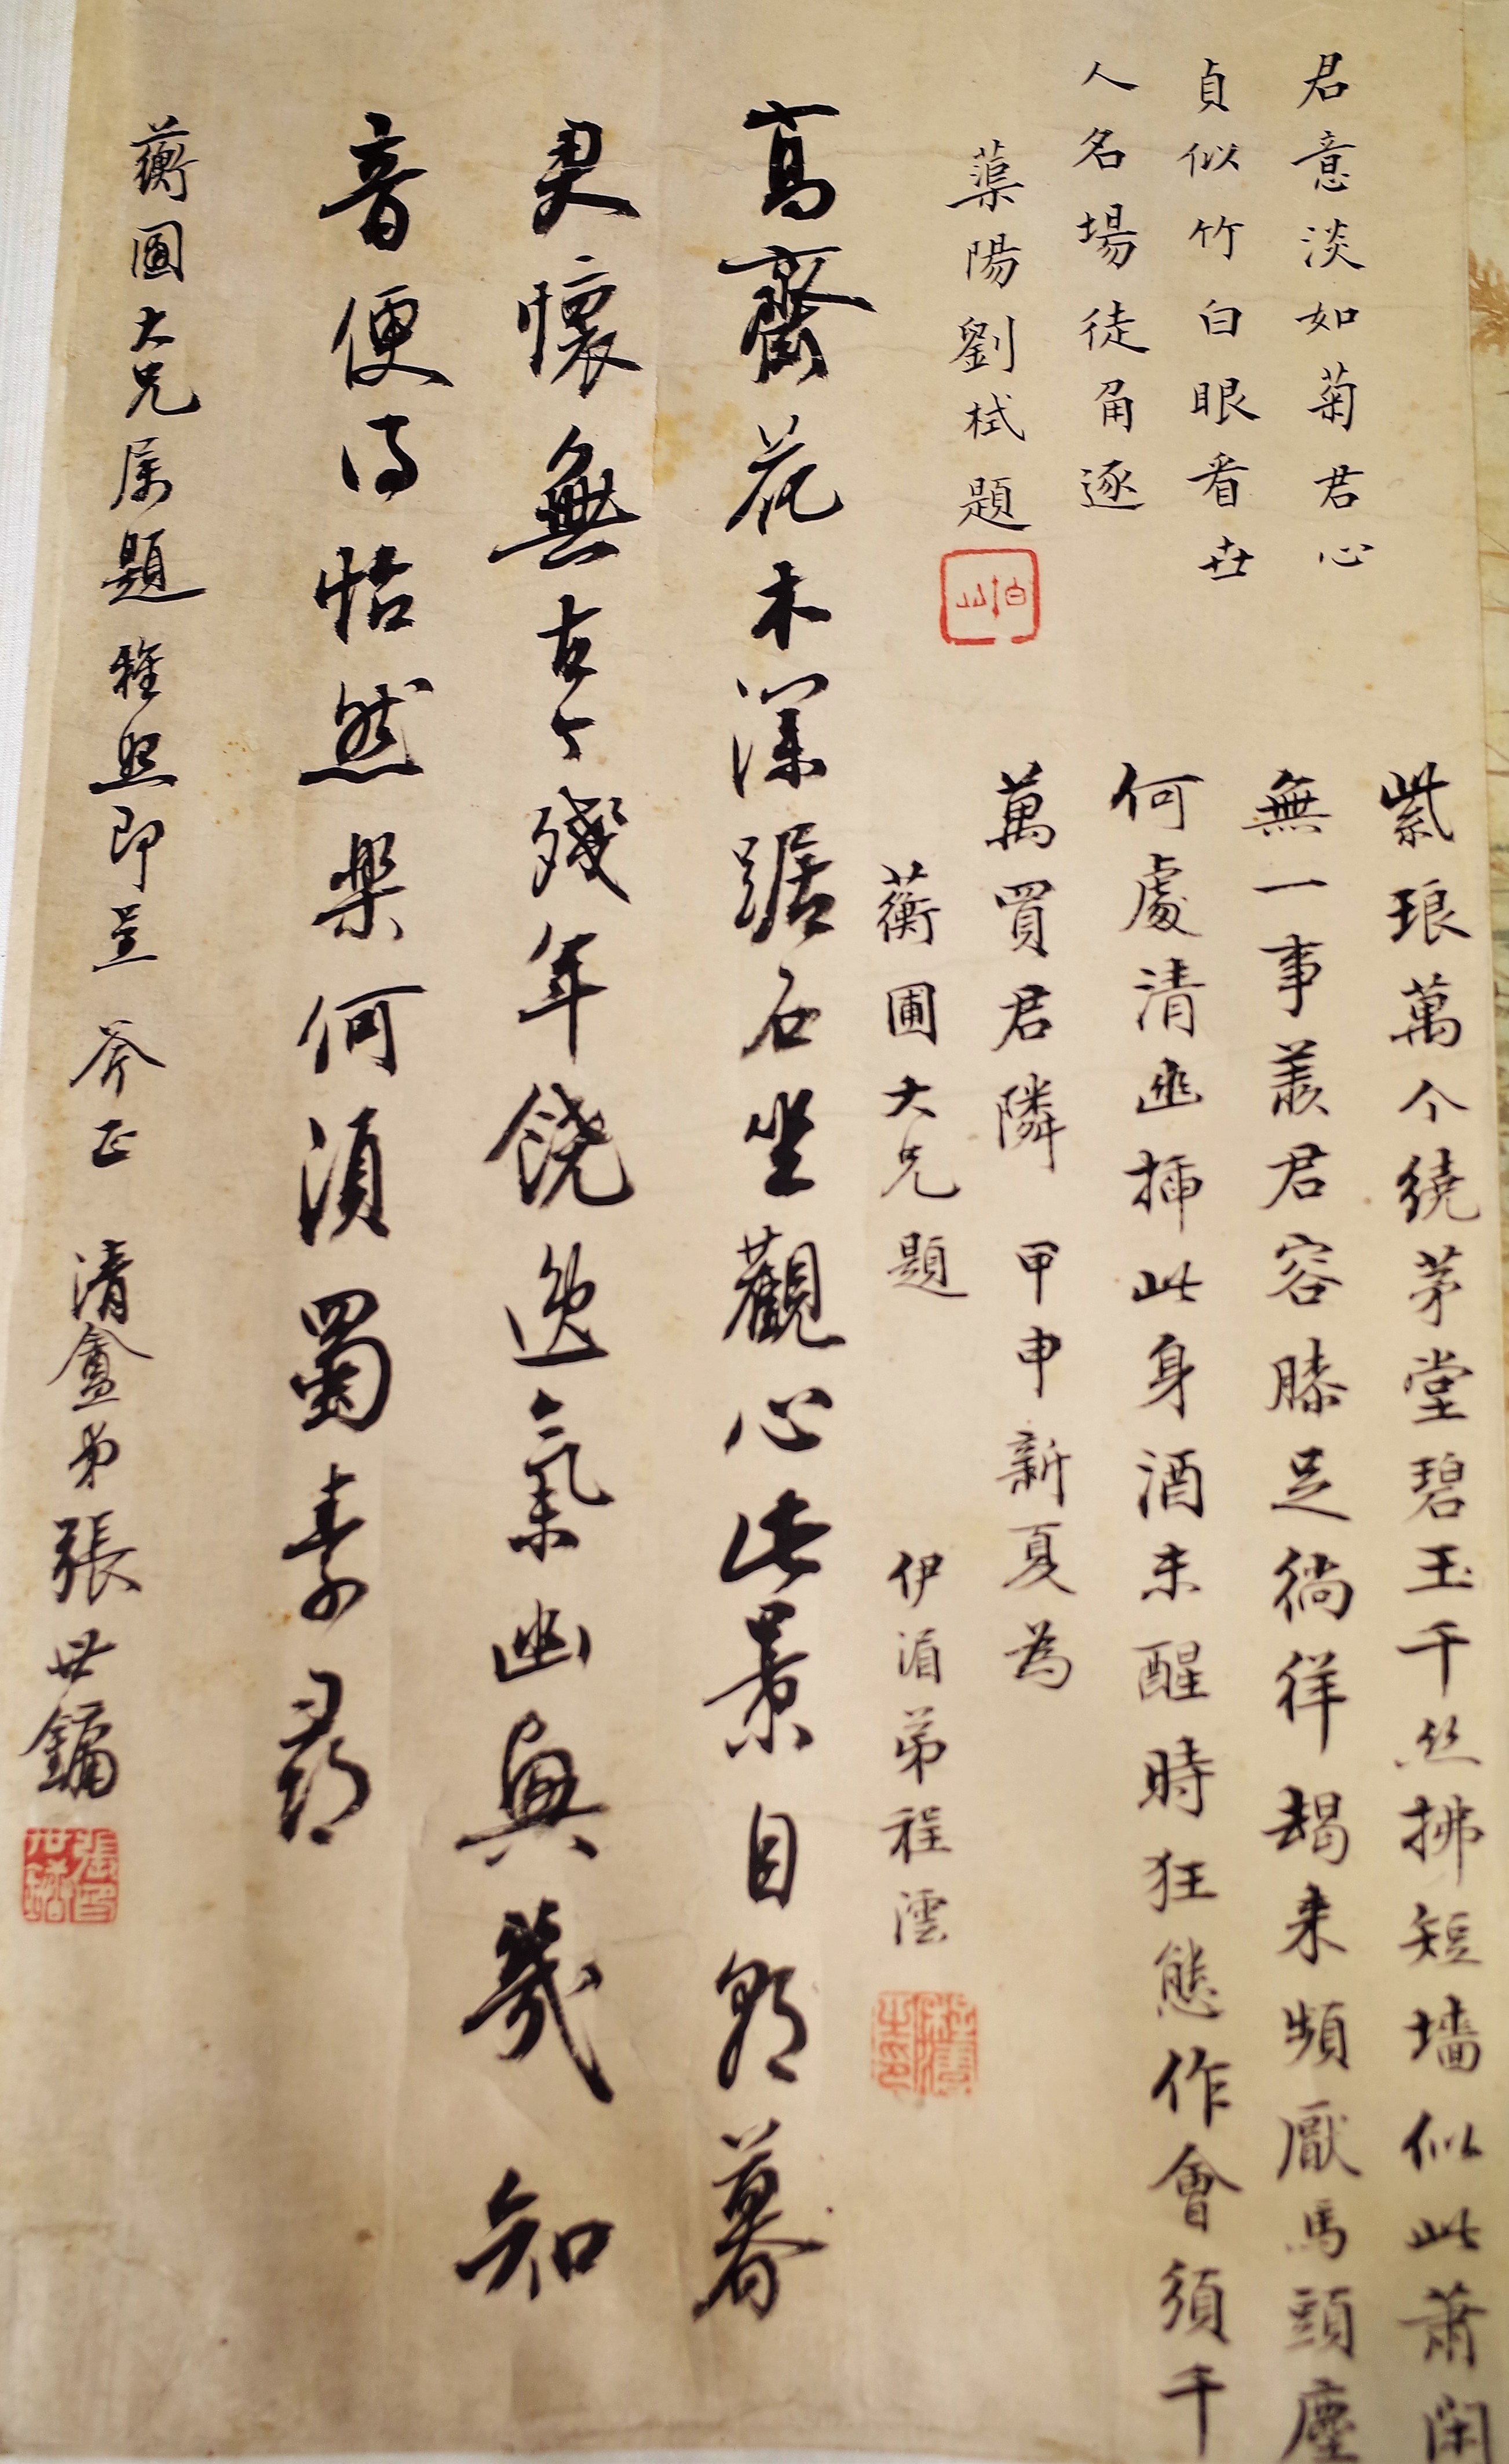 君意淡如菊君心
貞似竹白眼看世
人名場徒角逐
蕖陽劉栻題
紫琅萬个繞茅堂碧玉千丝拂短墙似此蕭閑
無一事羨君容膝足徜徉朅来頻厭馬頭塵
何處清逰揷此身酒未醒時狂態作會須千
萬買君隣 甲申新夏為
蘅圃大兄題 伊湄弟程澐
高齋花木深踞石坐觀心此景自朝暮
君懷無古今殘年饒逸氣幽興幾知
音便得怡然樂何須蜀素尋
蘅圃大兄属題雅照即呈 斧正 清盦弟張世鏞